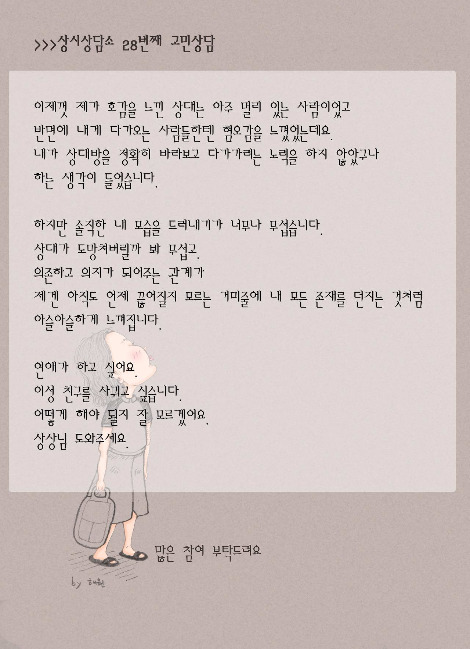 >>>상시상담소 28번째 고민상담
이제껏 제가 호감을 느낀 상대는 아주 멀리 있는 사람이었고
반면에 내게 다가오는 사람들한텐 혐오감을 느꼈었는데요.
내가 상대방을 정확히 바라보고 다가가려는 노력을 하지 않았구나
하는 생각이 들었습니다.
하지만 솔직한 내 모습을 드러내기가 너무나 무섭습니다.
상대가 도망쳐버릴까 봐 무섭고.
의존하고 의지가 되어주는 관계가
제겐 아직도 언제 끊어질지 모르는 거미줄에 내 모든 존재를 던지는 것처럼
아슬아슬하게 느껴집니다.
연애가 하고 싶어요.
이성 친구를 사귀고 싶습니다.
어떻게 해야 될지 잘 모르겠어요.
상상님 도와주세요.
많은 참여 부탁드려요
by 해원